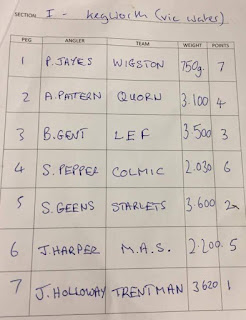 SECTION I - Kegworth (via water)
PEG ANGLER TEAM WEIGHT POINTS
1 P. JAYES WIGSTON 750g. 7
2 A. PATTERN QUORN 3.100 4
3 B. GENT LEF 3.500 3
4 S. PEPPER COLMIC 2.030 6
5 S. GEENS STARLETS 3.600 2
6 J. HARPER M.A.S. 2.200. 5
7 J. HOLLOWAY TRENTMAN 3620 1